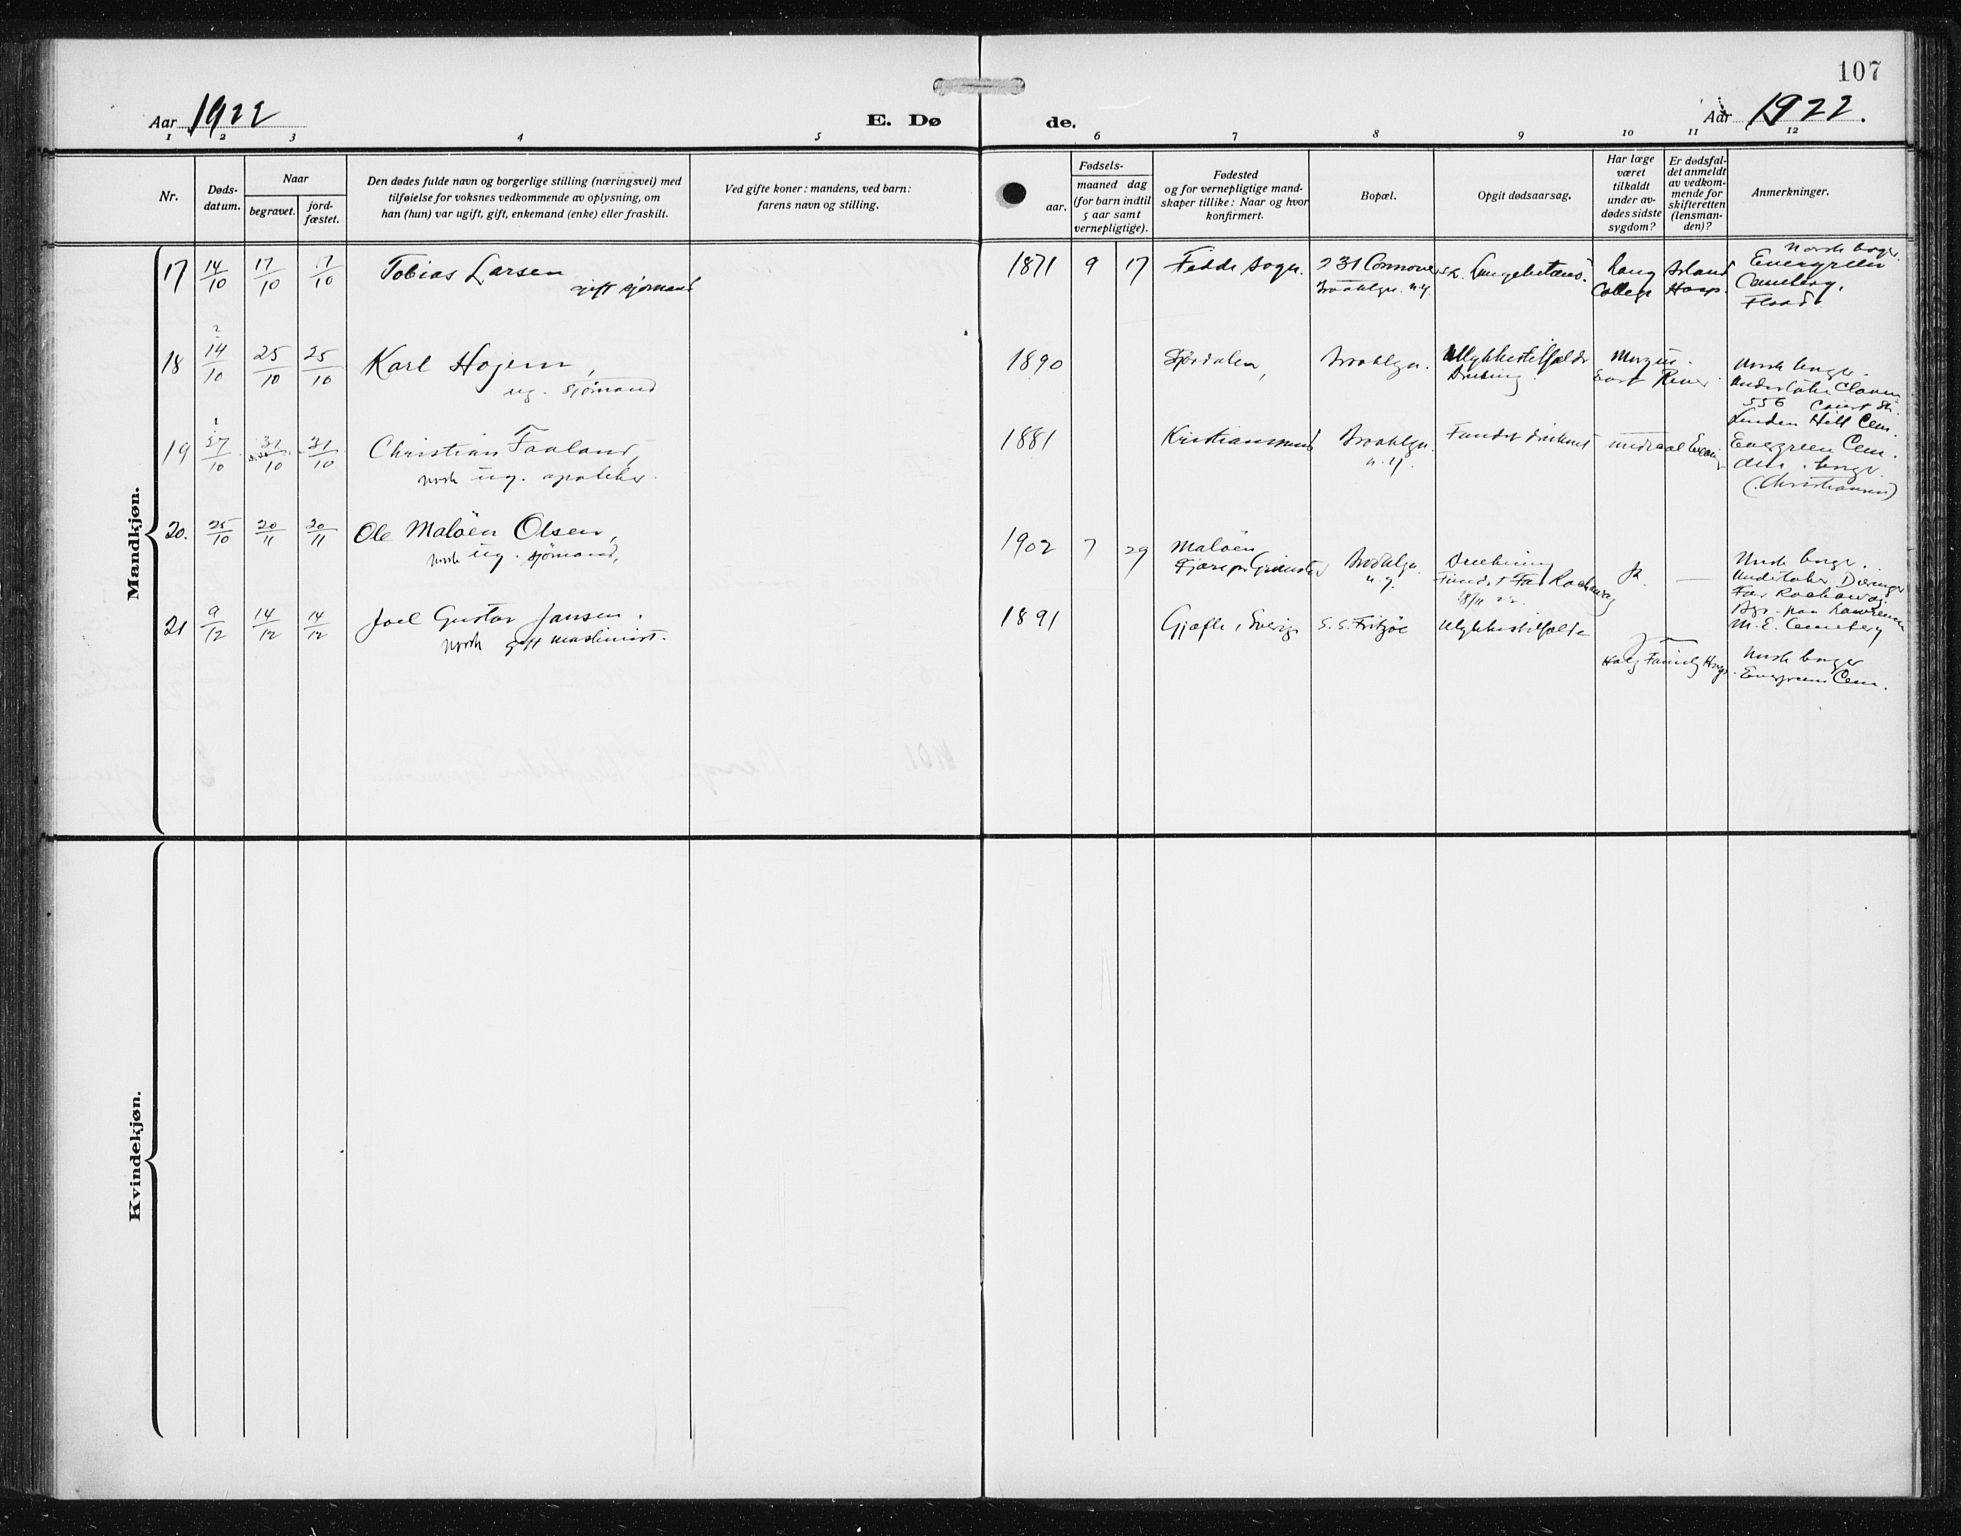 107
Aar 1922
E. Dø
de.
Aar 1922.
1 2 3 4 5 6 7 8 9 10 11 12
Nr.
Døds-
datum.
Naar
begravet.
jord-
fæstet.
Den dødes fulde navn og borgerlige stilling (næringsvei) med
tilføielse for voksnes vedkommende av oplysning, om
han (hun) var ugift, gift, enkemand (enke) eller fraskilt.
Ved gifte koner: mandens, ved barn:
farens navn og stilling.
Fødsels-
aar.
maaned dag
(for barn indtil
5 aar samt
vernepligtige).
Fødested
og for vernepligtige mand-
skaper tillike: Naar og hvor
konfirmert.
Bopæl.
Opgit dødsaarsag.
Har læge
været
tilkaldt
under av-
dødes sidste
sygdom?
Er dødsfal-
det anmeldt
av vedkom-
mende for
skifteretten
(lensman-
den)?
Anmerkninger.
Mandkjøn.
17 14/10 17/10 17/10 Tobias Larsen
gift sjømand
1871 9 17 Fedde sogn. 231 Conover
Brooklyn. N.Y.
Long Island
College Hosp.
Norsk borger.
Evergreen
Cemetery.
18 14/10 25/10 25/10 Karl Hojem,
ug. sjømand
1890 Stjørdalen, Brooklyn. Ulykkestilfælde
East River.
Norsk borger.
556 Court St.
Linden Hill Cem.
19 27/10 31/10 31/10 Christian Faaland,
norsk ug. apoteker.
1881 Kristianssund Brooklyn.
N.Y.
Fundet druknet
Evergreen Cem.
(Christiansen)
20. 25/10 20/11 20/11 Ole Maløen Olsen,
norsk ug. sjømand,
1902 7 29 Maløen
Fjære pr Grimstad
Brooklyn.
N.Y.
Drukning
Fundet Far Rockaway
18/11 22.
Norsk borger.
Undertaker
Far Rockaway
M. E. Cemetery
21 9/12 14/12 14/12 Joel Gustav Jansen.
norsk gift maskinist.
1891 Gjæfle, Sverig S.S. Fritzøe Ulykkestilfælde
Holy Family Hosp.
Norsk borger
Evergreen Cem.
Kvindekjøn.